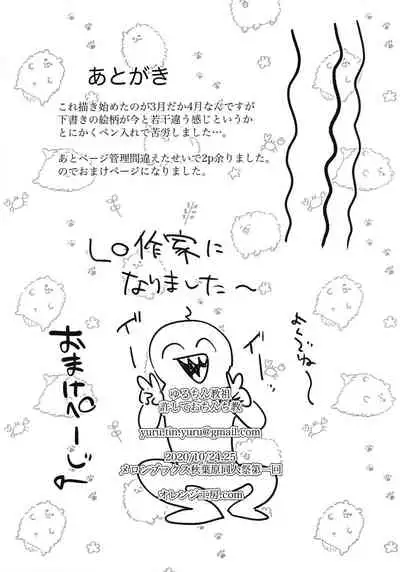 あとがき
これ描き始めたのが3月だか4月なんですが
下書きの絵柄が今と若干違う感じというか
とにかくペン入れで苦労しました…。
あとページ管理間違えたせいで2p余りました。
のでおまけページになりました。
LO作家に
なりました〜
おまけぺーじ
ゆるちん教祖
許しておちんち教
yuru.tin.yuru@gmail.com
2020/10/24.25
メロンブックス秋葉原同人祭第一回
オレンジ工房.com